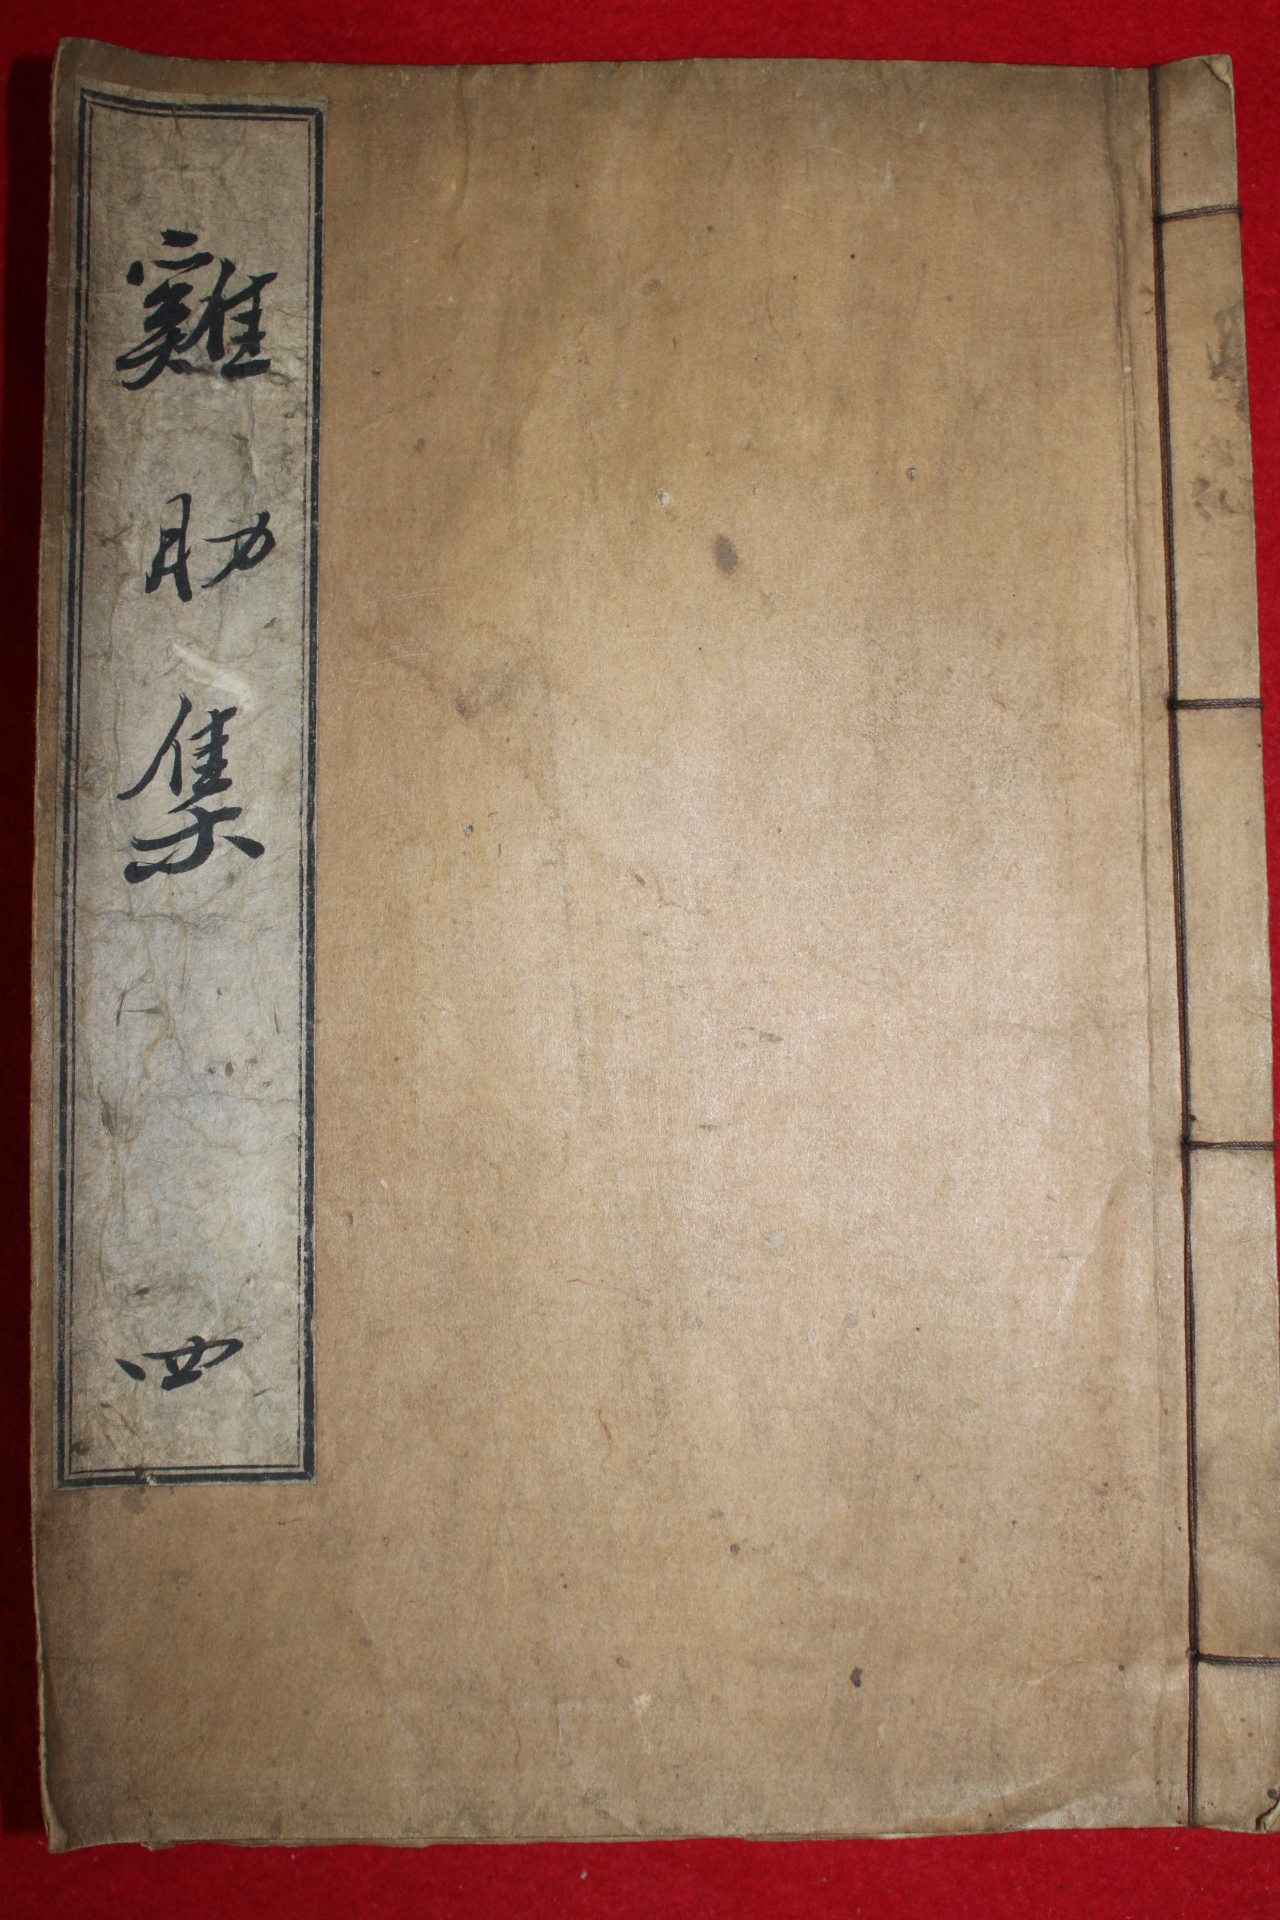 雞肋集 四